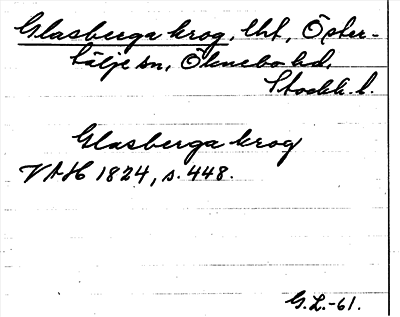 Glasberga krog, lht, Öster-
tälje sn, Öknebo hd,
Stockh. l.
Glasberga krog
VAH 1824, s. 448.
G.L.-61.